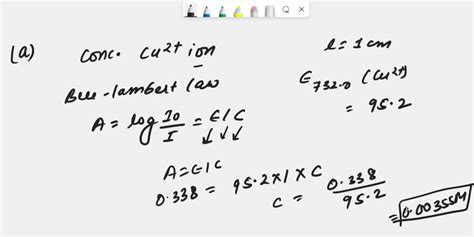 (a) Conc. Cu2+ ion
l = 1 cm
Beer-lambert law
ε732.0 (Cu2+)
= 95.2
A = log I0/I = ε l C
A = ε l C
0.338 = 95.2 x 1 x C
C = 0.338/95.2
= 0.00355M